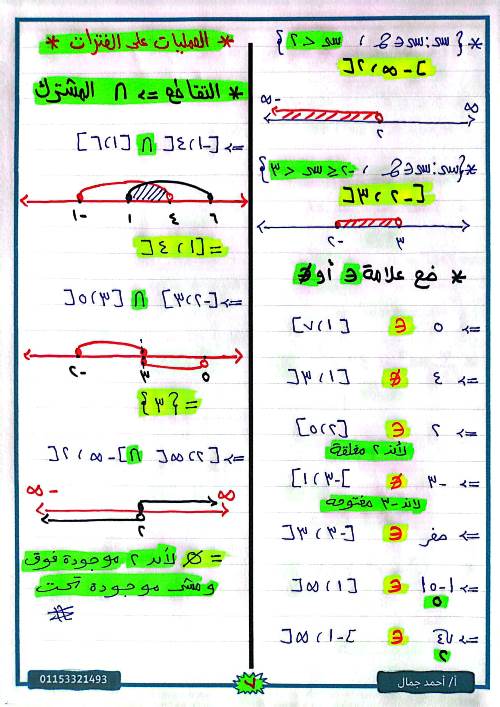 * {س: س ∈ ح ، س < ٢}
]-∞، ٢[
-∞ ∞
٢
* {س: س ∈ ح ، -٢ ≤ س < ٣}
[-٢، ٣[
-٢ ٣
* ضع علامة ∈ أو ∉
=> ٥ ∈ [١، ٧]
=> ٤ ∉ [١، ٣[
=> ٢ ∈ [٢، ٥]
لأند ٢ مغلقة
=> -٣ ∉ ]-٣، ١]
لاند -٣ مفتوحة
=> صفر ∈ [-٣، ٣[
=> |-٥| ∈ [١، ∞[
٥
=> √٤ ∈ ]-١، ∞[
٢
* العمليات على الفترات *
* التقاطع => ∩ المشترك
=> [-١، ٤[ ∩ [١، ٦]
-١ ١ ٤ ٦
= [١، ٤[
=> [-٢، ٣] ∩ [٣، ٥[
-٢ ٣ ٥
= {٣}
=> [٢، ∞[ ∩ ]-∞، ٢[
-∞ ∞
٢
= ∅ لأند ٢ موجودة فوق
ومش موجودة تحت
01153321493
٧
أ/ أحمد جمال